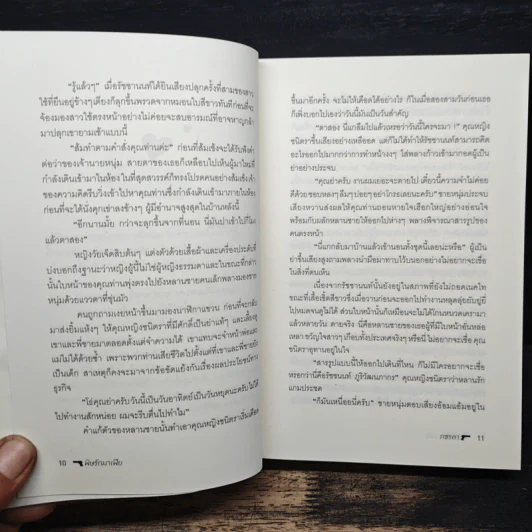 "รู้แล้วๆ" เมื่อรัชชานนท์ได้ยินเสียงปลุกครั้งที่สามของสาว
ใช้ที่ยืนอยู่ข้างๆเตียงก็ลุกขึ้นพรวดจากหมอนใบสีขาวทันทีก่อนที่จะ
จ้องมองสาวใช้ตรงหน้าอย่างไม่ค่อยจะสบอารมณ์ที่อาจหาญกล้า
มาปลุกเขายามเช้าแบบนี้
"ส้มทำตามคำสั่งคุณท่านค่ะ" ก่อนที่ส้มเช้งจะได้รับ
ต่อว่าของเจ้านายหนุ่ม สายตาของเธอก็เหลือบไปเห็นผู้มาใหม่ที่
กำลังเดินเข้ามาในห้อง ในที่สุดสวรรค์ก็ทรงโปรดคนอย่างส้มเช้ง
ของความคิดรีบวิ่งเข้าไปหาคุณท่านซึ่งกำลังเดินเข้ามาภายในห้อง
ก่อนที่จะได้นั่งคุกเข่าลงข้างๆ ผู้มีอำนาจสูงสุดในบ้านหลังนี้
"อีกนานมั้ย กว่าจะลุกขึ้นจากที่นอน นี่มันบ่าเข้าไปกี่โมง
แล้วตาสอง"
หญิงวัยเจ็ดสิบต้นๆ แต่งตัวด้วยเสื้อผ้าและเครื่องประดับที่
บ่งบอกถึงฐานะว่าหญิงผู้นี้ไม่ใช่ผู้หญิงธรรมดาและในขณะที่กล่าว
นั้นใบหน้าของคุณท่านพุ่งตรงไปยังหลานชายคนเล็กพลางมองชาย
หนุ่มด้วยแววตาที่ขุ่นมัว
คนถูกถามเงยหน้าขึ้นมามองนาฬิกาแขวน ก่อนที่จะกลับ
มาส่งยิ้มแห้งๆ ให้คุณหญิงชนิตราที่มีศักดิ์เป็นย่าแท้ๆ และเลี้ยงดู
เขาและพี่ชายมาตลอดตั้งแต่จำความได้ เขาแทบจะจำหน้าพ่อและ
แม่ไม่ได้ด้วยซ้ำ เพราะพวกท่านเสียชีวิตไปตั้งแต่ที่เขาและพี่ชายยัง
เป็นเด็ก สาเหตุก็คงจะมาจากข้อขัดแย้งกันเรื่องผลประโยชน์ทาง
ธุรกิจ
"โธ่คุณย่าครับวันนี้เป็นวันอาทิตย์เป็นวันหยุดนะครับไม่ได้
ไปทำงานสักหน่อย ผมจะรีบตื่นไปทำไม"
คำแก้ตัวของหลานชายนั้นทำเอาคุณหญิงชนิตราเริ่มเดือด
10 พิษรักมาเฟีย
ขึ้นมาอีกครั้ง จะไม่ให้เดือดได้อย่างไร ก็ในเมื่อสองสามวันก่อนเธอ
ก็เพิ่งบอกไปเองว่าวันนี้มันเป็นวันสำคัญ
"ตาสอง นี่แกลืมไปแล้วเหรอว่าวันนี้ใครจะมา !" คุณหญิง
ชนิตราขึ้นเสียงอย่างเหลืออด แต่ก็ไม่ได้ทำให้รัชชานนท์สามารถคิด
อะไรออกไปมากกว่าการทำหน้างงๆ ใส่พลางก้าวเข้ามากอดผู้เป็น
ย่าอย่างประจบ
"คุณย่าครับ งานผมเยอะจะตายไป เดี๋ยวนี้ความจำไม่ค่อย
ดีด้วยชอบหลงๆลืมๆบ่อยๆอย่าโกรธเลยนะครับ"ชายหนุ่มประจบ
เสียงหวานส่งผลให้คุณท่านถอนหายใจเฮือกใหญ่อย่างอ่อนใจ
พร้อมกับผลักหลานชายให้ออกไปห่างๆ พลางพิจารณาสารรูปของ
คนตรงหน้า
"นี่แกกลับมาบ้านแล้วเข้านอนทั้งชุดนี้เลยน่ะหรือ" ผู้เป็น
ย่าขึ้นเสียงสูงถามพลางนำมือมาทาบไว้บนอกอย่างไม่อยากจะเชื่อ
ในสิ่งที่ตนเห็น
เนื่องจากรัชชานนท์นั้นยังอยู่ในสภาพที่ยังไม่ถอดเนคไท
ขณะที่เสื้อเชิ้ตสีขาวซึ่งเมื่อวานก่อนจะออกไปทำงานหลุดลุ่ยยับยู่ยี่
ไปหมดจนดูไม่ได้ ส่วนใบหน้านั้นก็เหมือนจะไม่ได้โกนหนวดเครามา
แล้วหลายวัน ตายจริง นี่คือหลานชายของเธอผู้ที่มีใบหน้าอันหล่อ
เหลา ขวัญใจสาวๆ เกือบทั้งประเทศจริงๆ หรือนี่ ไม่อยากจะเชื่อ คุณหญิง
ชนิตราอุทานอยู่ในใจ
"สารรูปแบบนี้ให้ออกไปเดินที่ไหน ก็ไม่มีใครอยากจะเชื่อ
หรอกว่านี่คือรัชชานนท์ ภูริวัฒนภากร" คุณหญิงชนิตราว่าหลานรัก
แกมประชด
"ก็มันเหนื่อยนี่ครับ" ชายหนุ่มตอบเสียงอ้อมแอ้มอยู่ใน
กชรดา 11